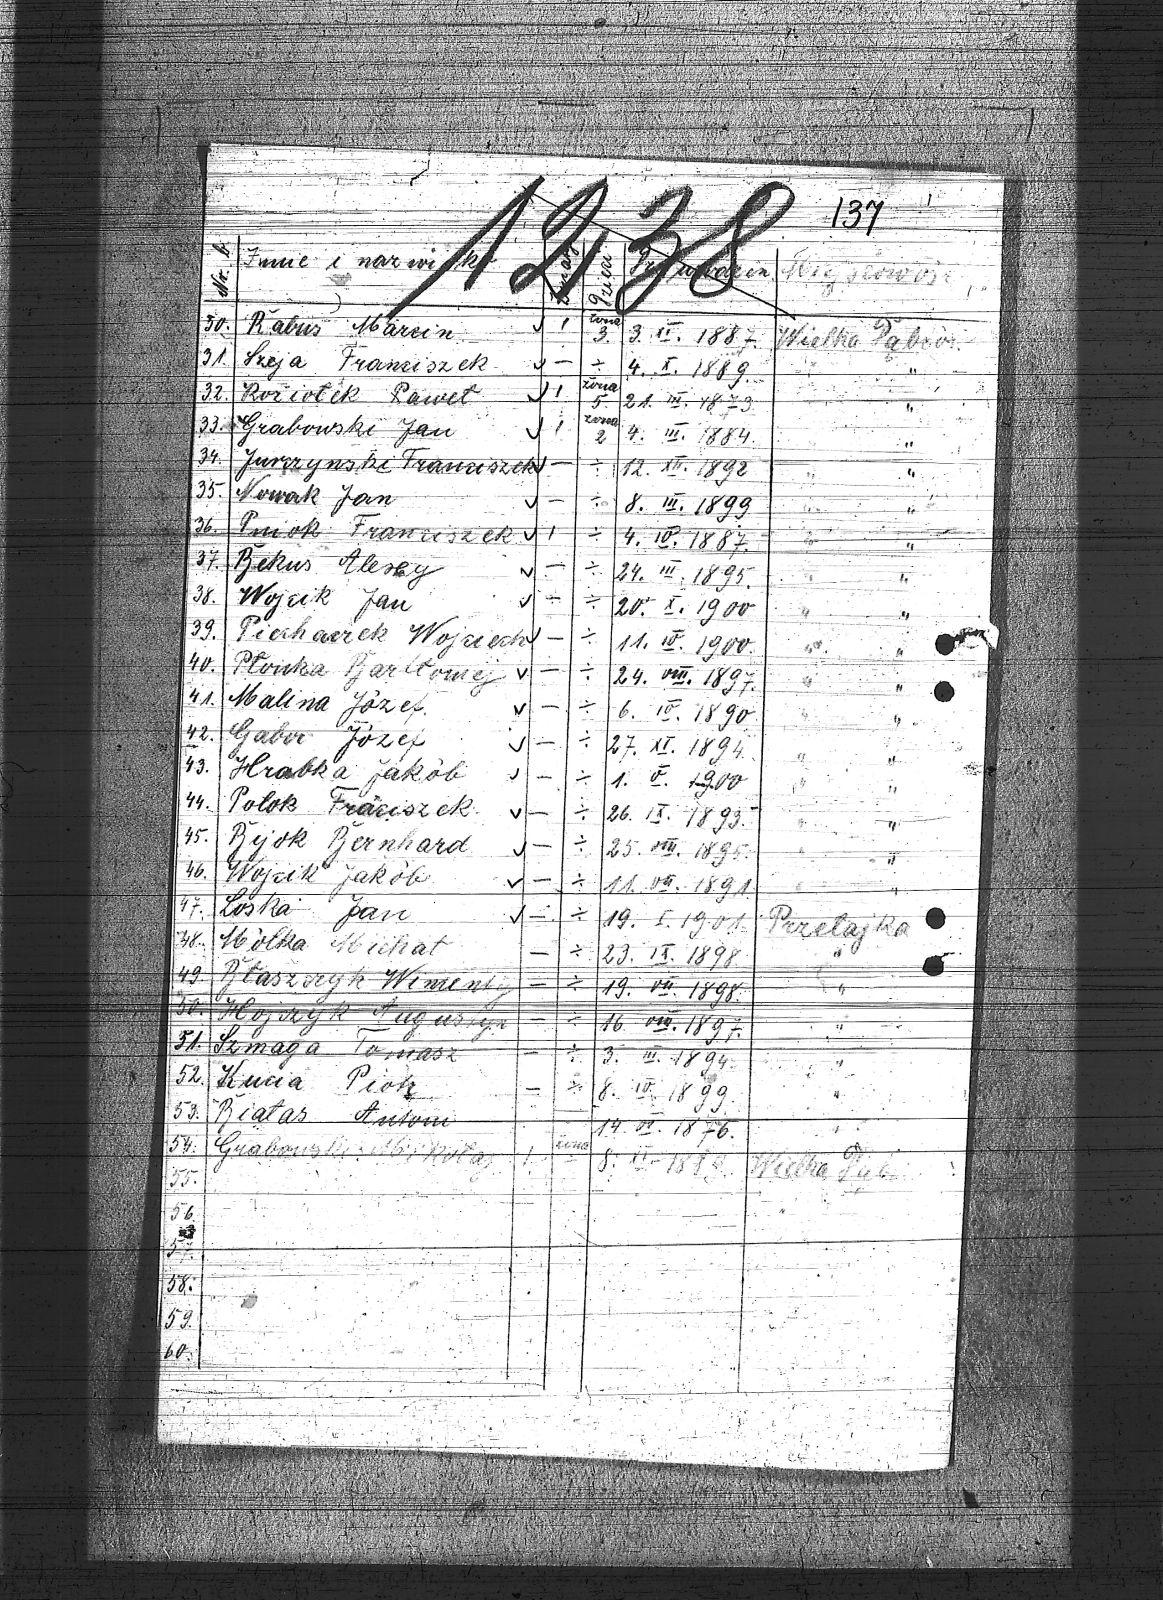 137
1238
Nr. b. Imię i nazwisko
30. Rabus Marcin √ ' żona 3 3. XI. 1887. Wielka Dąbr.
31. Szeja Franciszek √ — ÷ 4. X. 1889. "
32. Koziołek Paweł √ ' żona 5. 21. III. 1873. "
33. Grabowski Jan √ ' żona 2 4. III. 1884. "
34. Jurczynski Franciszek √ — ÷ 12. XII. 1892 "
35. Nowak Jan √ — ÷ 8. III. 1899 "
36. Pniok Franciszek √ ' ÷ 4. IV. 1887. "
37. Bekus Alexy √ — ÷ 24. III. 1895. "
38. Wojcik Jan √ — ÷ 20. X. 1900 "
39. Piecharek Wojciech √ — ÷ 11. IV. 1900. "
40. Płonka Bartłomiej √ — ÷ 24. VIII. 1897. "
41. Malina Józef. √ — ÷ 6. IV. 1890 "
42. Gabor Józef √ — ÷ 27. XI. 1894. "
43. Hrabka Jakób √ — ÷ 1. V. 1900 "
44. Polok Franciszek √ — ÷ 26. IX. 1893. "
45. Bijok Bernhard √ — ÷ 25. VIII. 1895. "
46. Wojcik Jakób √ — ÷ 11. VII. 1891. "
47. Loska Jan √ — ÷ 19. I. 1901. Przełajka
48. Mólka Michał — ÷ 23. IX. 1898 "
49. Błaszczyk — ÷ 19. VII. 1898. "
50. Hojczyk Augustyn — ÷ 16. VIII. 1897. "
51. Szmaga Tomasz — ÷ 3. III. 1894. "
52. Kucia Piotr — ÷ 8. IV. 1899 "
53. Białas Antoni 14. VI. 1876. "
54. Grabowski Mikołaj ' żona 8. XI. Wielka Dąb.
55.
56.
57.
58.
59.
60.